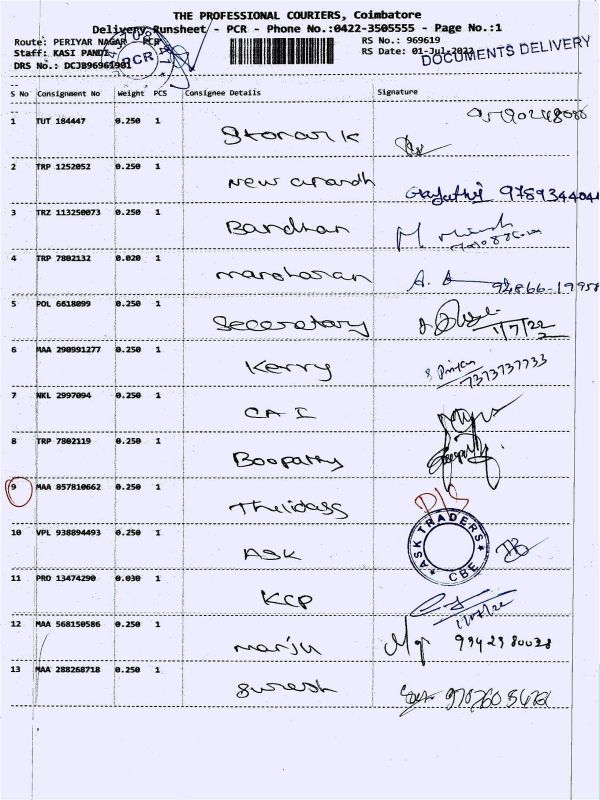 THE PROFESSIONAL COURIERS, Coimbatore
Delivery Runsheet - PCR - Phone No.:0422-3505555 - Page No.:1
Route: PERIYAR NAGAR - PCR RS No.: 969619
Staff: KASI PANDI RS Date: 01-Jul-2022
DOCUMENTS DELIVERY
DRS No.: DCJB96961901
PCR
S No Consignment No Weight PCS Consignee Details Signature
1 TUT 184447 0.250 1
2 TRP 1252052 0.250 1 New anandh Gayathri 9789344044
3 TRZ 113250073 0.250 1 Bandhan
4 TRP 7802132 0.020 1 manoharan 94866-19958
5 POL 6618099 0.250 1 Seceretary 1/7/22
6 MAA 290991277 0.250 1 Kerry 7373737733
7 NKL 2997094 0.250 1 CA I
8 TRP 7802119 0.250 1 Boopathy
9 MAA 857810662 0.250 1 Thulidass D/S
10 VPL 938894493 0.250 1 ASK
ASK TRADERS
CBE
11 PRO 13474290 0.030 1 KCP
12 MAA 568150586 0.250 1 manju
13 MAA 288268718 0.250 1 Suresh